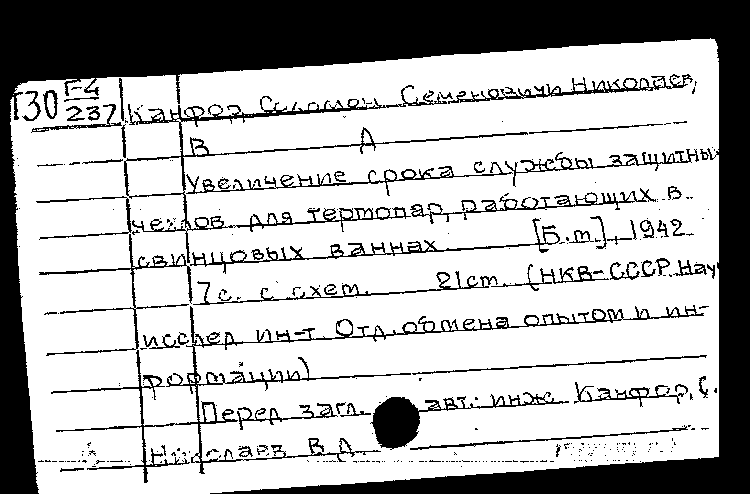 Г30 Г-4
237 Канфор, Соломон Семенович и Николаев,
В А
Увеличение срока службы защитных
чехлов для термопар, работающих в
свинцовых ваннах [Б.м], 1942
7с. с схем. 21 ст. (НКВ-СССР Науч
исслед ин-т Отд. обмена опытом и ин-
формации)
Перед загл. авт.: инж Канфор, С.
Николаев В.А.